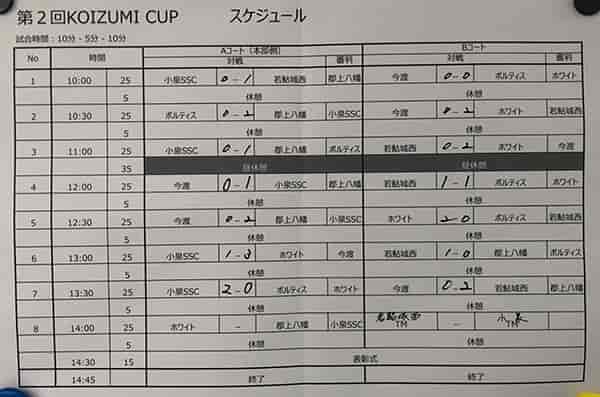 第２回KOIZUMI CUP スケジュール
試合時間：10分 - 5分 - 10分
No 時間 Aコート（本部側） Bコート
対戦 審判 対戦 審判
1 10:00 25 小泉SSC 0-1 若鮎城西 郡上八幡 今渡 0-0 ボルティス ホワイト
5 休憩 休憩
2 10:30 25 ボルティス 0-2 郡上八幡 小泉SSC 今渡 0-2 ホワイト 若鮎城西
5 休憩 休憩
3 11:00 25 小泉SSC 0-1 郡上八幡 ボルティス 若鮎城西 0-2 ホワイト 今渡
35 昼休憩 昼休憩
4 12:00 25 今渡 0-1 小泉SSC 郡上八幡 若鮎城西 1-1 ボルティス ホワイト
5 休憩 休憩
5 12:30 25 今渡 0-2 郡上八幡 小泉SSC ホワイト 2-0 ボルティス 若鮎城西
5 休憩 休憩
6 13:00 25 小泉SSC 1-3 ホワイト 今渡 若鮎城西 1-0 郡上八幡 ボルティス
5 休憩 休憩
7 13:30 25 小泉SSC 2-0 ボルティス ホワイト 今渡 0-2 若鮎城西 郡上八幡
5 休憩 休憩
8 14:00 25 ホワイト - 郡上八幡 小泉SSC 若鮎城西 TM - TM
5 休憩 休憩
14:30 15 表彰式
14:45 終了 終了